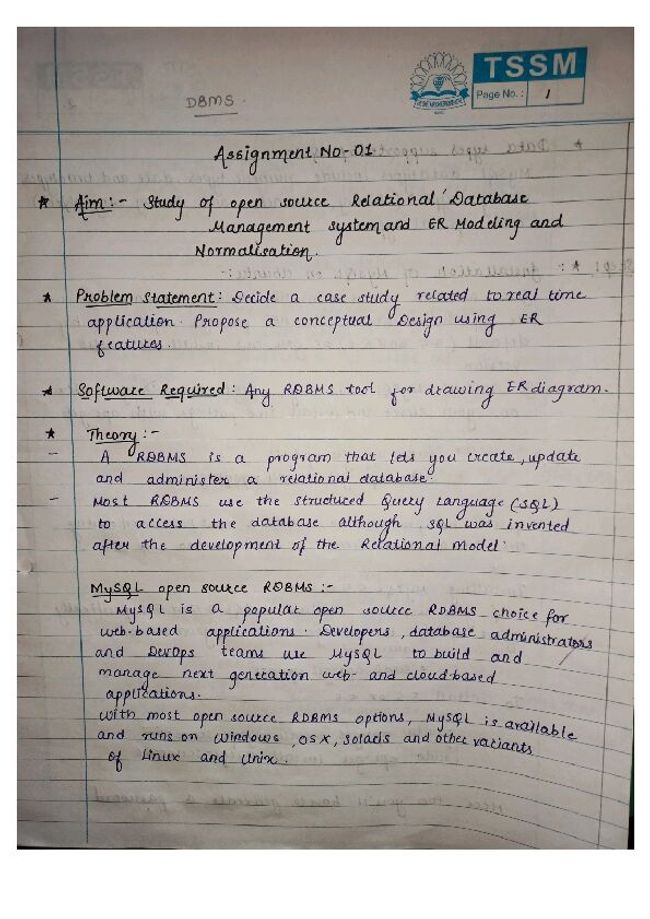 TSSM
Page No.: 1
DBMS.
Assignment No-01
★ Aim:- Study of open source Relational Database
Management system and ER Modeling and
Normalisation.
★ Problem Statement: Decide a case study related to real time
application. Propose a conceptual Design using ER
features.
★ Software Required: Any RDBMS tool for drawing ER diagram.
★ Theory:-
- A RDBMS is a program that lets you create, update
and administer a relational database.
- Most RDBMS use the structured Query Language (SQL)
to access the database although SQL was invented
after the development of the Relational model.
MySQL open source RDBMS :-
MySQL is a popular open source RDBMS choice for
web-based applications. Developers, database administrators
and DevOps teams use MySQL to build and
manage next generation web- and cloud-based
applications.
With most open source RDBMS options, MySQL is available
and runs on windows, OSX, Solaris and other variants
of Linux and Unix.